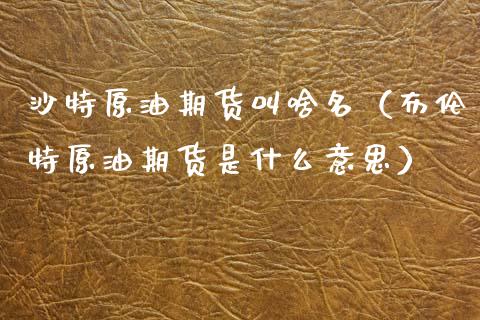 沙特原油期货叫啥名（布伦
特原油期货是什么意思）